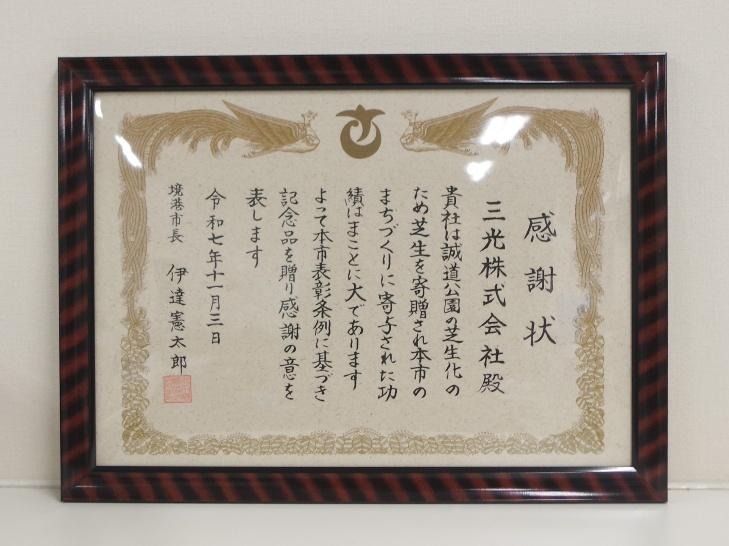 感謝状
三光株式会社殿
貴社は誠道公園の芝生化の
ため芝生を寄贈され本市の
まちづくりに寄与された功
績はまことに大であります
よつて本市表彰条例に基づき
記念品を贈り感謝の意を
表します
令和七年十一月三日
境港市長 伊達憲太郎